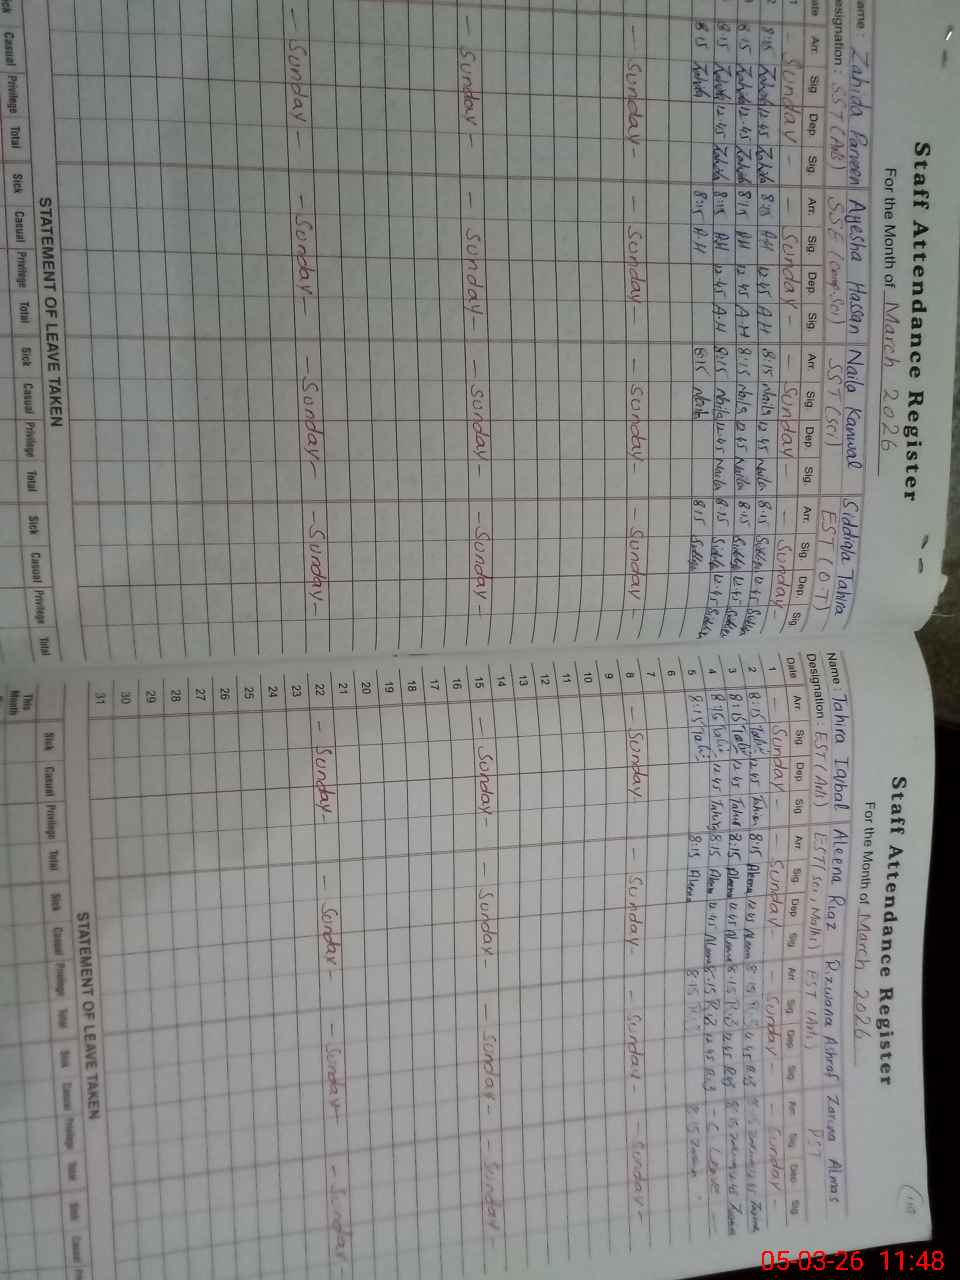 Staff Attendance Register
For the Month of March 2026
Name: Zahida Parveen Ayesha Hassan Naila Kanwal Siddiqa Tahira
Designation: SST (Arts) SSE (Comp.Sci) SST (Sci) EST (O.T)
Date Arr. Sig Dep. Sig. Arr. Sig. Dep. Sig. Arr. Sig. Dep. Sig. Arr. Sig. Dep. Sig
1 - Sunday - - Sunday - - Sunday - - Sunday -
2 8:15 Zahida 12:45 Zahida 8:15 A.H 12:45 A.H 8:15 Naila 12:45 Naila 8:15 12:45
8:15 Zahida 12:45 Zahida 8:15 AH 12:45 A.H 8:15 Naila 12:45 Naila 8:15 12:45
8:15 Zahida 12:45 Zahida 8:15 AH 12:45 A.H 8:15 Naila 12:45 Naila 8:15 12:45
8:15 Zahida 8:15 A.H 8:15 Naila 8:15
- Sunday - - Sunday - - Sunday - - Sunday -
- Sunday - - Sunday - - Sunday - - Sunday -
- Sunday - - Sunday - - Sunday - - Sunday -
STATEMENT OF LEAVE TAKEN
Sick Casual Privilege Total Sick Casual Privilege Total Sick Casual Privilege Total Sick Casual Privilege Total
110
Staff Attendance Register
For the Month of March 2026
Name: Tahira Iqbal Aleena Riaz Rizwana Ashraf Zarina Almas
Designation: EST (Arts) EST (Sci, Math) EST (Arts) PST
Date Arr. Sig Dep Sig Arr. Sig Dep Sig Arr Sig Dep Sig Arr Sig Dep Sig
1 - Sunday - - Sunday - - Sunday - - Sunday -
2 8:15 12:45 8:15 Aleena 12:45 Aleena 8:15 12:45
3 8:15 12:45 8:15 Aleena 12:45 Aleena 8:15 12:45 8:15 12:45
4 8:15 12:45 8:15 Aleena 12:45 Aleena 8:15 12:45 - C. Leave -
5 8:15 8:15 Aleena 8:15 8:15
6
7
8 - Sunday - - Sunday - - Sunday - - Sunday -
9
10
11
12
13
14
15 - Sunday - - Sunday - - Sunday - - Sunday -
16
17
18
19
20
21
22 - Sunday - - Sunday - - Sunday - - Sunday -
23
24
25
26
27
28
29
30
31
STATEMENT OF LEAVE TAKEN
Sick Casual Privilege Total Sick Casual Privilege Total Sick Casual Privilege Total Sick Casual
This Month
05-03-26 11:48